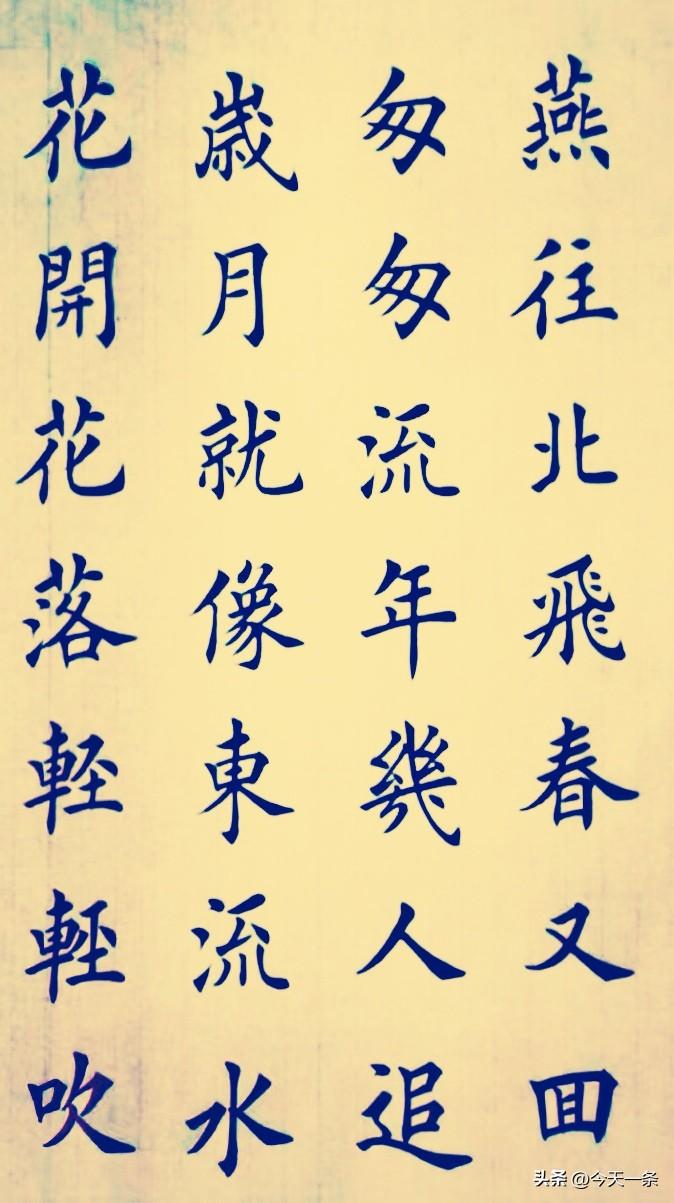 燕往北飛春又回
匆匆流年幾人追
歲月就像東流水
花開花落輕輕吹
头条 @今天一条